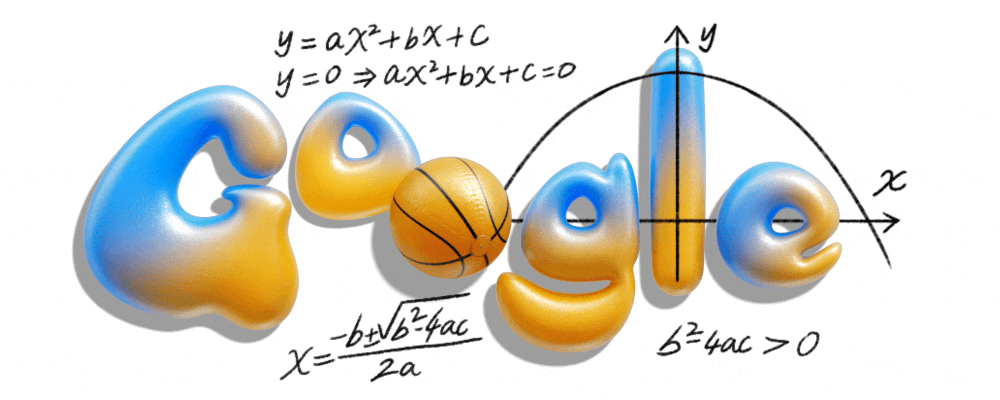 y = ax²+bx+c
y=0 ⇒ ax²+bx+c=0
y
Google
x
x = -b±√b²-4ac / 2a
b²-4ac > 0